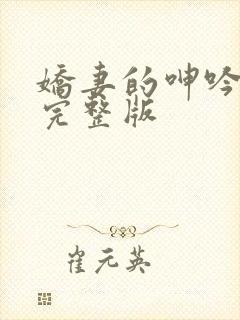 嬌妻的呻吟
完整版
崔元英